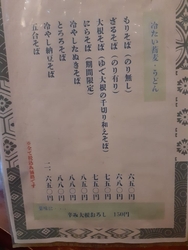 冷たい蕎麦・うどん
もりそば（のり無し） 六五〇
ざるそば（のり有り） 七五〇
大根そば（ゆで大根の千切り和えそば） 七五〇
にらそば（期間限定） 七五〇
冷やしたぬきそば 八八〇
とろろそば 八八〇
冷やし納豆そば 八八〇
五合そば 二、六五〇
辛味大根おろし 150円